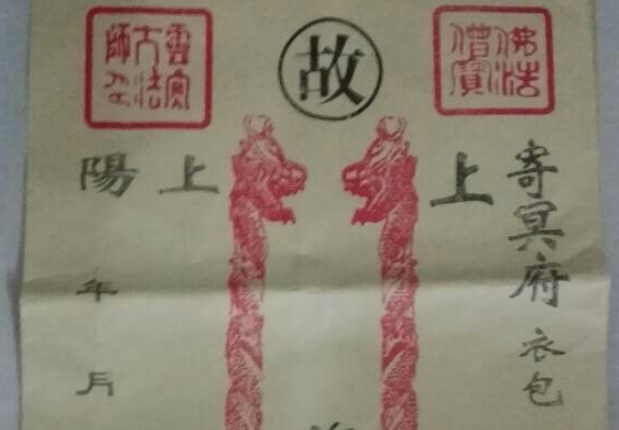 佛法僧寶
故
大法師印
寄冥府 衣包
上
上
陽 年 月